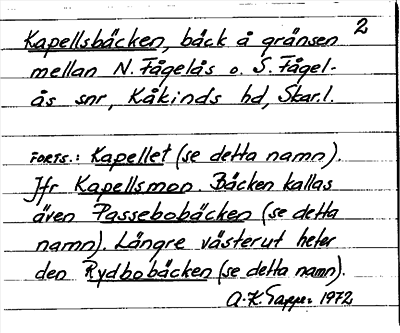 2
Kapellsbäcken, bäck å gränsen
mellan N. Fågelås o. S. Fågel-
ås snr, Kåkinds hd, Skar.l.
FORTS.: Kapellet (se detta namn).
Jfr Kapellsmon. Bäcken kallas
även Passebobäcken (se detta
namn). Längre västerut heter
den Rydbobäcken (se detta namn).
A.K. 1972